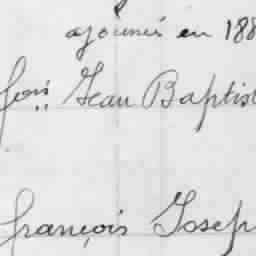 ajournés en 188
fois Jean Baptist
françois Joseph